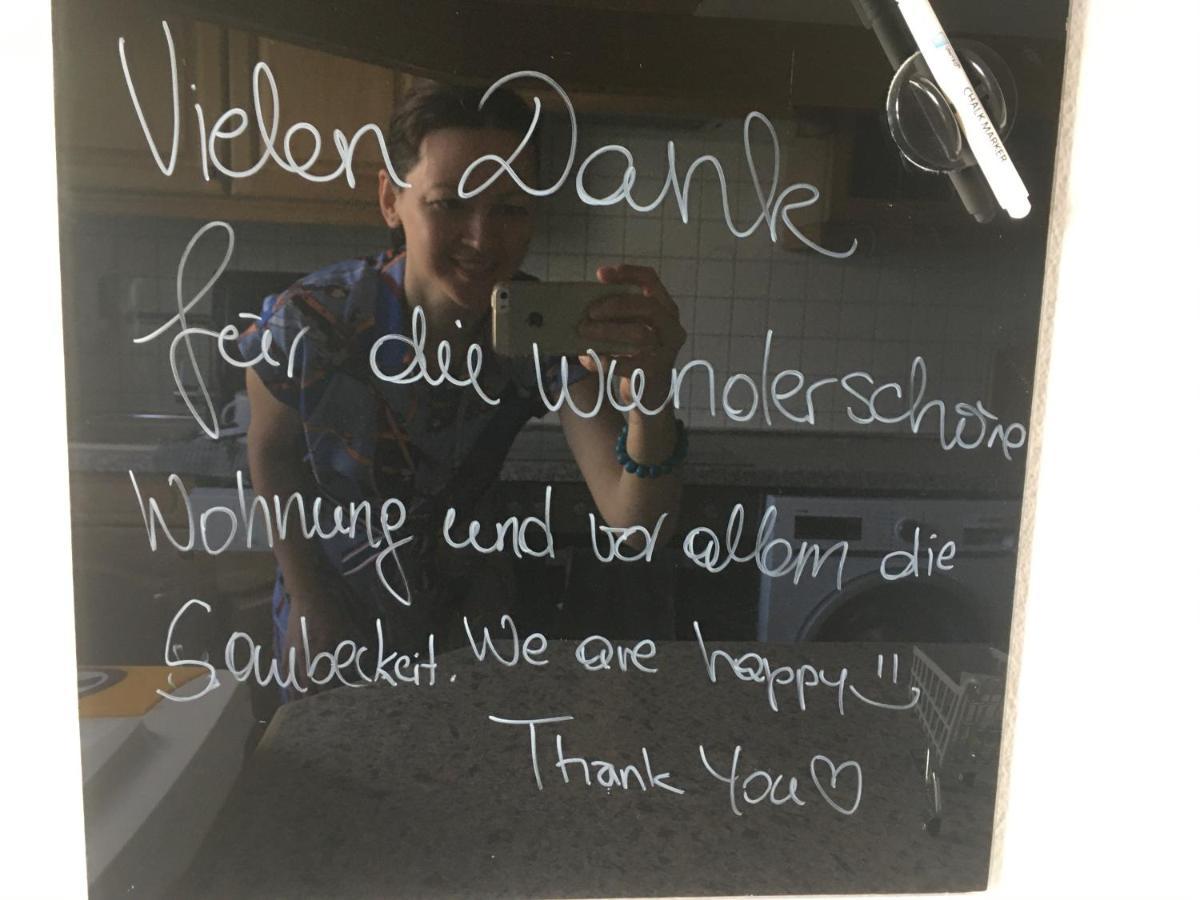 Vielen Dank
für die wunderschöne
Wohnung und vor allem die
Saubeckeit. We are happy
Thank You♡
CHALK MARKER